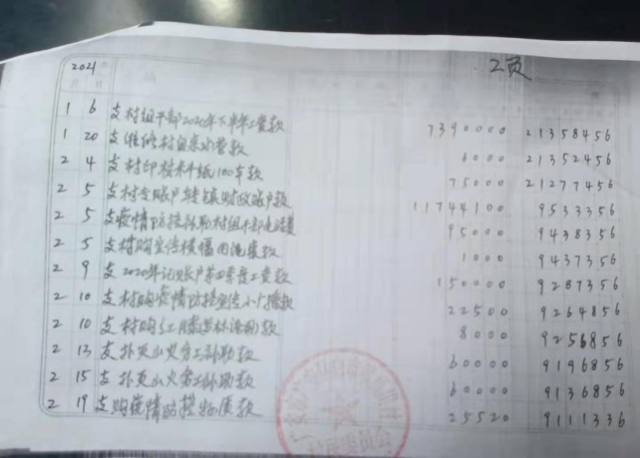 2021
2页
1 6 支村组干部2020年下半年工资款 7390000 21358456
1 20 支维修村自来水管款 6000 21352456
2 4 支村印 100本款 75000 21277456
2 5 支村 账户转镇财政账户款 11744100 9533356
2 5 支疫情防控 村组干部电话费 95000 9438356
2 5 支村购宣传横幅 款 1000 9437356
2 9 支2020年记账户第四季度工资款 150000 9287356
2 10 支村购疫情防控宣传小广播款 22500 9264856
2 10 支村购 款 8000 9256856
2 13 支扑灭山火务工补助款 60000 9196856
2 15 支扑灭山火务工补助款 60000 9136856
2 19 支购疫情防控物质款 25520 9111336
村民委员会